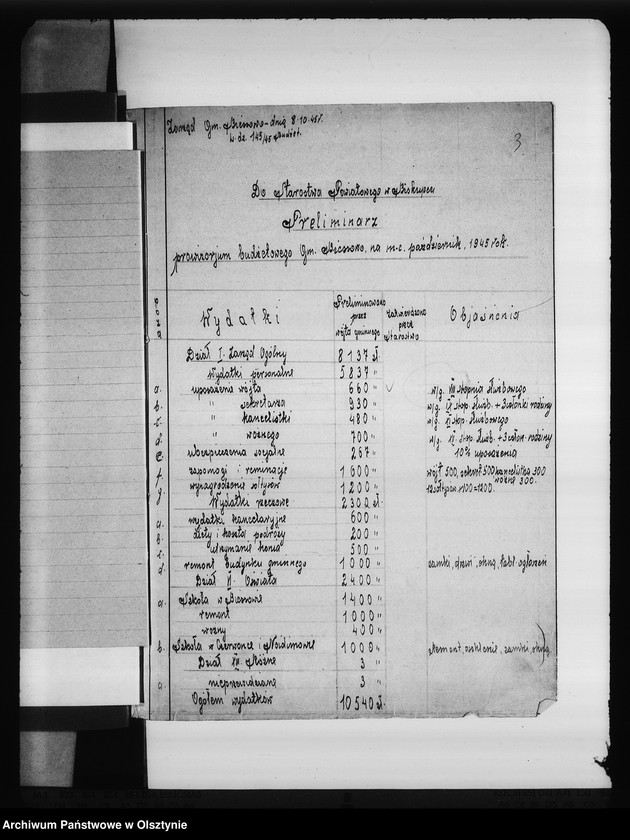 Zarząd Gm. Biesowo - dnia 8.10.45 r.
L. dz. 143/45 Budżet.
3
Do Starostwa Powiatowego w Biskupcu
Preliminarz
prowizorjum budżetowego Gm. Biesowo, na m-c. październik, 1945 rok.
poza
Wydatki
Preliminowano przez wójta gminnego
Zatwierdzono przez Starostwo
Objaśnienia
Dział I. Zarząd Ogólny 8137 zł.
Wydatki personalne 5837 "
a. uposażenie wójta 660 " w/g. VII stopnia służbowego
b. " sekretarza 930 " w/g. stop. służb. + 3 członki rodziny
c. " kancelistki 480 " w/g. stop. służbowego
d. " woźnego 700 " w/g. stop. służb. + 3 człon. rodziny
e. ubezpieczenia socjalne 267 " 10% uposażenia
f. zapomogi i reminacje 1600 " wójt 500, sekret 500 kancelistka 300 woźne 300.
g. wynagrodzenie sołtysów 1200 " 12 sołtysów x 100 = 1200.
Wydatki rzeczowe 2300 zł.
a. wydatki kancelaryjne 600 "
b. diety i koszta podróży 200 "
c. utrzymanie konia 500 "
d. remont budynku gminnego 1000 " zamki, drzwi, okna, tabl. ogłoszeń
Dział VI. Oświata 2400 "
a. Szkoła w Biesowie 1400 "
remont 1000 "
woźny 400 "
b. Szkoła w Czerwonce i 1000 " remont, oszklenie, zamki, okna
Dział Różne 3 "
a. nieprzewidziane 3 "
Ogółem wydatków 10540 zł.
Archiwum Państwowe w Olsztynie